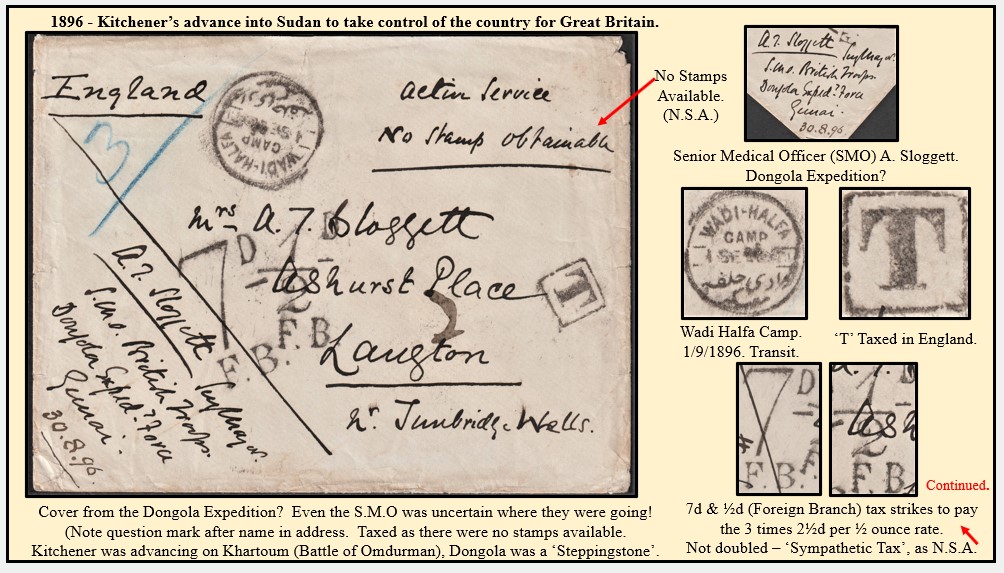 1896 - Kitchener’s advance into Sudan to take control of the country for Great Britain.
England
3/
WADI-HALFA
CAMP
1 SE 96
وادي حلفه
Active Service
No Stamp obtainable
Mrs A. T. Sloggett
Ashurst Place
Langton
nr. Tunbridge Wells.
7D
F.B.
1D
2
F.B.
T
2
A. T. Sloggett
S.M.O. British Troops.
Dongola Exped? Force
Gemai.
30.8.96.
No Stamps
Available.
(N.S.A.)
A.T. Sloggett
S.M.O. British Troops.
Dongola Exped? Force
Gemai.
30.8.96
Senior Medical Officer (SMO) A. Sloggett.
Dongola Expedition?
WADI-HALFA
CAMP
1 SE 96
وادي حلفه
T
Wadi Halfa Camp.
1/9/1896. Transit.
‘T’ Taxed in England.
7D
F.B.
1D
Ash
2
F.B.
Continued.
7d & ½d (Foreign Branch) tax strikes to pay
the 3 times 2½d per ½ ounce rate.
Not doubled – ‘Sympathetic Tax’, as N.S.A.
Cover from the Dongola Expedition? Even the S.M.O was uncertain where they were going!
(Note question mark after name in address. Taxed as there were no stamps available.
Kitchener was advancing on Khartoum (Battle of Omdurman), Dongola was a ‘Steppingstone’.